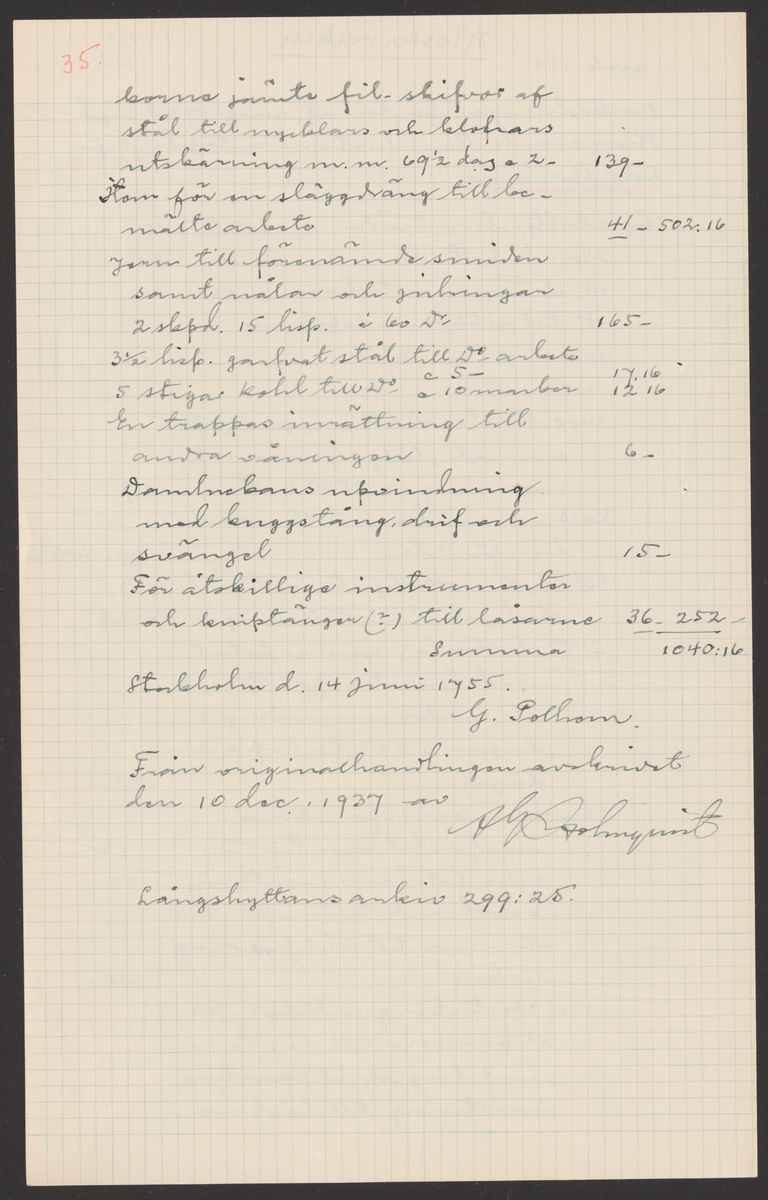 35.
korne jämte fil-skifvor af
stål till nycklars och klofvars
utskärning m.m. 69½ dag a 2- 139-
Item för en släggdräng till be-
mälte arbete 41- 502.16
Jern till förenämde smiden
samt nålar och
2 skpd. 15 lisp. à 60 Dr 165-
3½ lisp. garfvat stål till Do arbete
a 5- 17.16
5 stigar kohl till Do a 10 marker 12 16
En trappas inrättning till
andra våningen 6-
Damluckans upvindning
med kuggstång, drif och
svängel 15-
För åtskillige instrumenter
och kniptänger (?) till låsarne 36- 252-
Summa 1040:16
Stockholm d. 14 juni 1755.
G. Polhem.
Från originalhandlingen avskrivet
den 10 dec. 1937 av
Holmquist
Långshyttans arkiv 299:25.